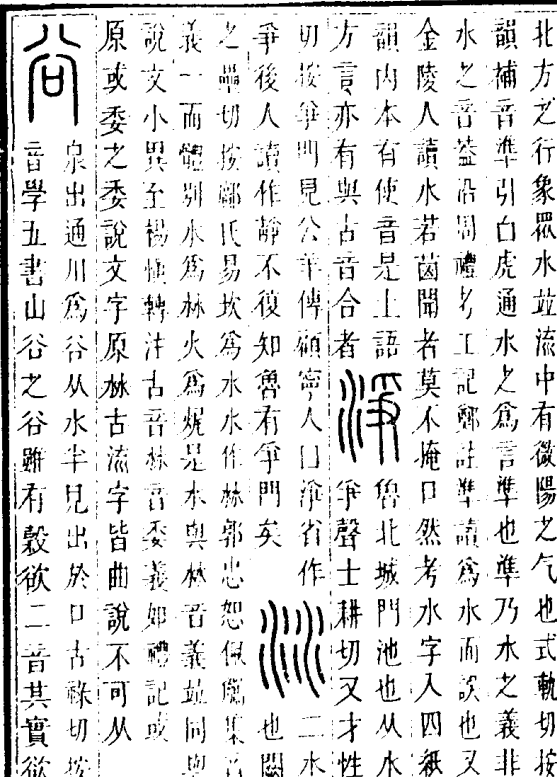 北方之行象眾水並流中有微陽之气也式軌切按
韻補音準引白虎通水之為言準也準乃水之義非
水之音葢沿周禮考工記鄭註準讀為水而誤也又
金陵人讀水若菌聞者莫不掩口然考水字入四紙
韻內本有使音是土語
方言亦有與古音合者
淨
魯北城門池也从水
爭聲士耕切又才性
切按爭門見公羊傳顧寧人曰淨省作
爭後人讀作靜不復知魯有爭門矣
沝
二水
也闕
之壘切按鄭氏易坎為水水作沝郭忠恕佩觿集音
義一而體別水為沝火為㷄是水與沝音義並同與
說文小異至楊慎轉注古音沝音委義如禮記或
原或委之委說文字原沝古流字皆曲說不可从
谷
泉出通川為谷从水半見出於口古祿切按
音學五書山谷之谷雖有穀欲二音其實欲